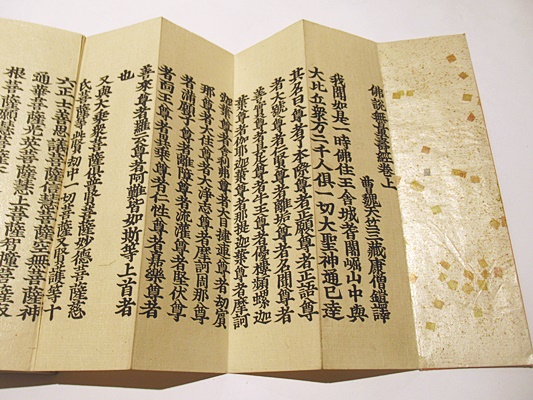 佛說無量壽經卷上
曹魏天竺三藏康僧鎧譯
我聞如是一時佛住王舍城耆闍崛山中與
大比丘衆万二千人俱一切大聖神通已達
其名曰尊者了本際尊者正願尊者正語尊
者大號尊者仁賢尊者離垢尊者名聞尊者
善實尊者具足尊者牛王尊者優樓頻蠡迦
葉尊者伽耶迦葉尊者那提迦葉尊者摩訶
迦葉尊者舍利弗尊者大目揵連尊者劫賓
那尊者大住尊者大淨志尊者摩訶周那尊
者滿願子尊者離障尊者流灌尊者堅伏尊
者面王尊者異乘尊者仁性尊者嘉樂尊者
善來尊者羅云尊者阿難皆如斯等上首者
也
又與大乘衆菩薩俱普賢菩薩妙德菩薩慈
氏菩薩等此賢劫中一切菩薩又賢護等十
六正士善思議菩薩信慧菩薩空無菩薩神
通華菩薩光英菩薩慧上菩薩智幢菩薩寂
根菩薩願慧菩薩